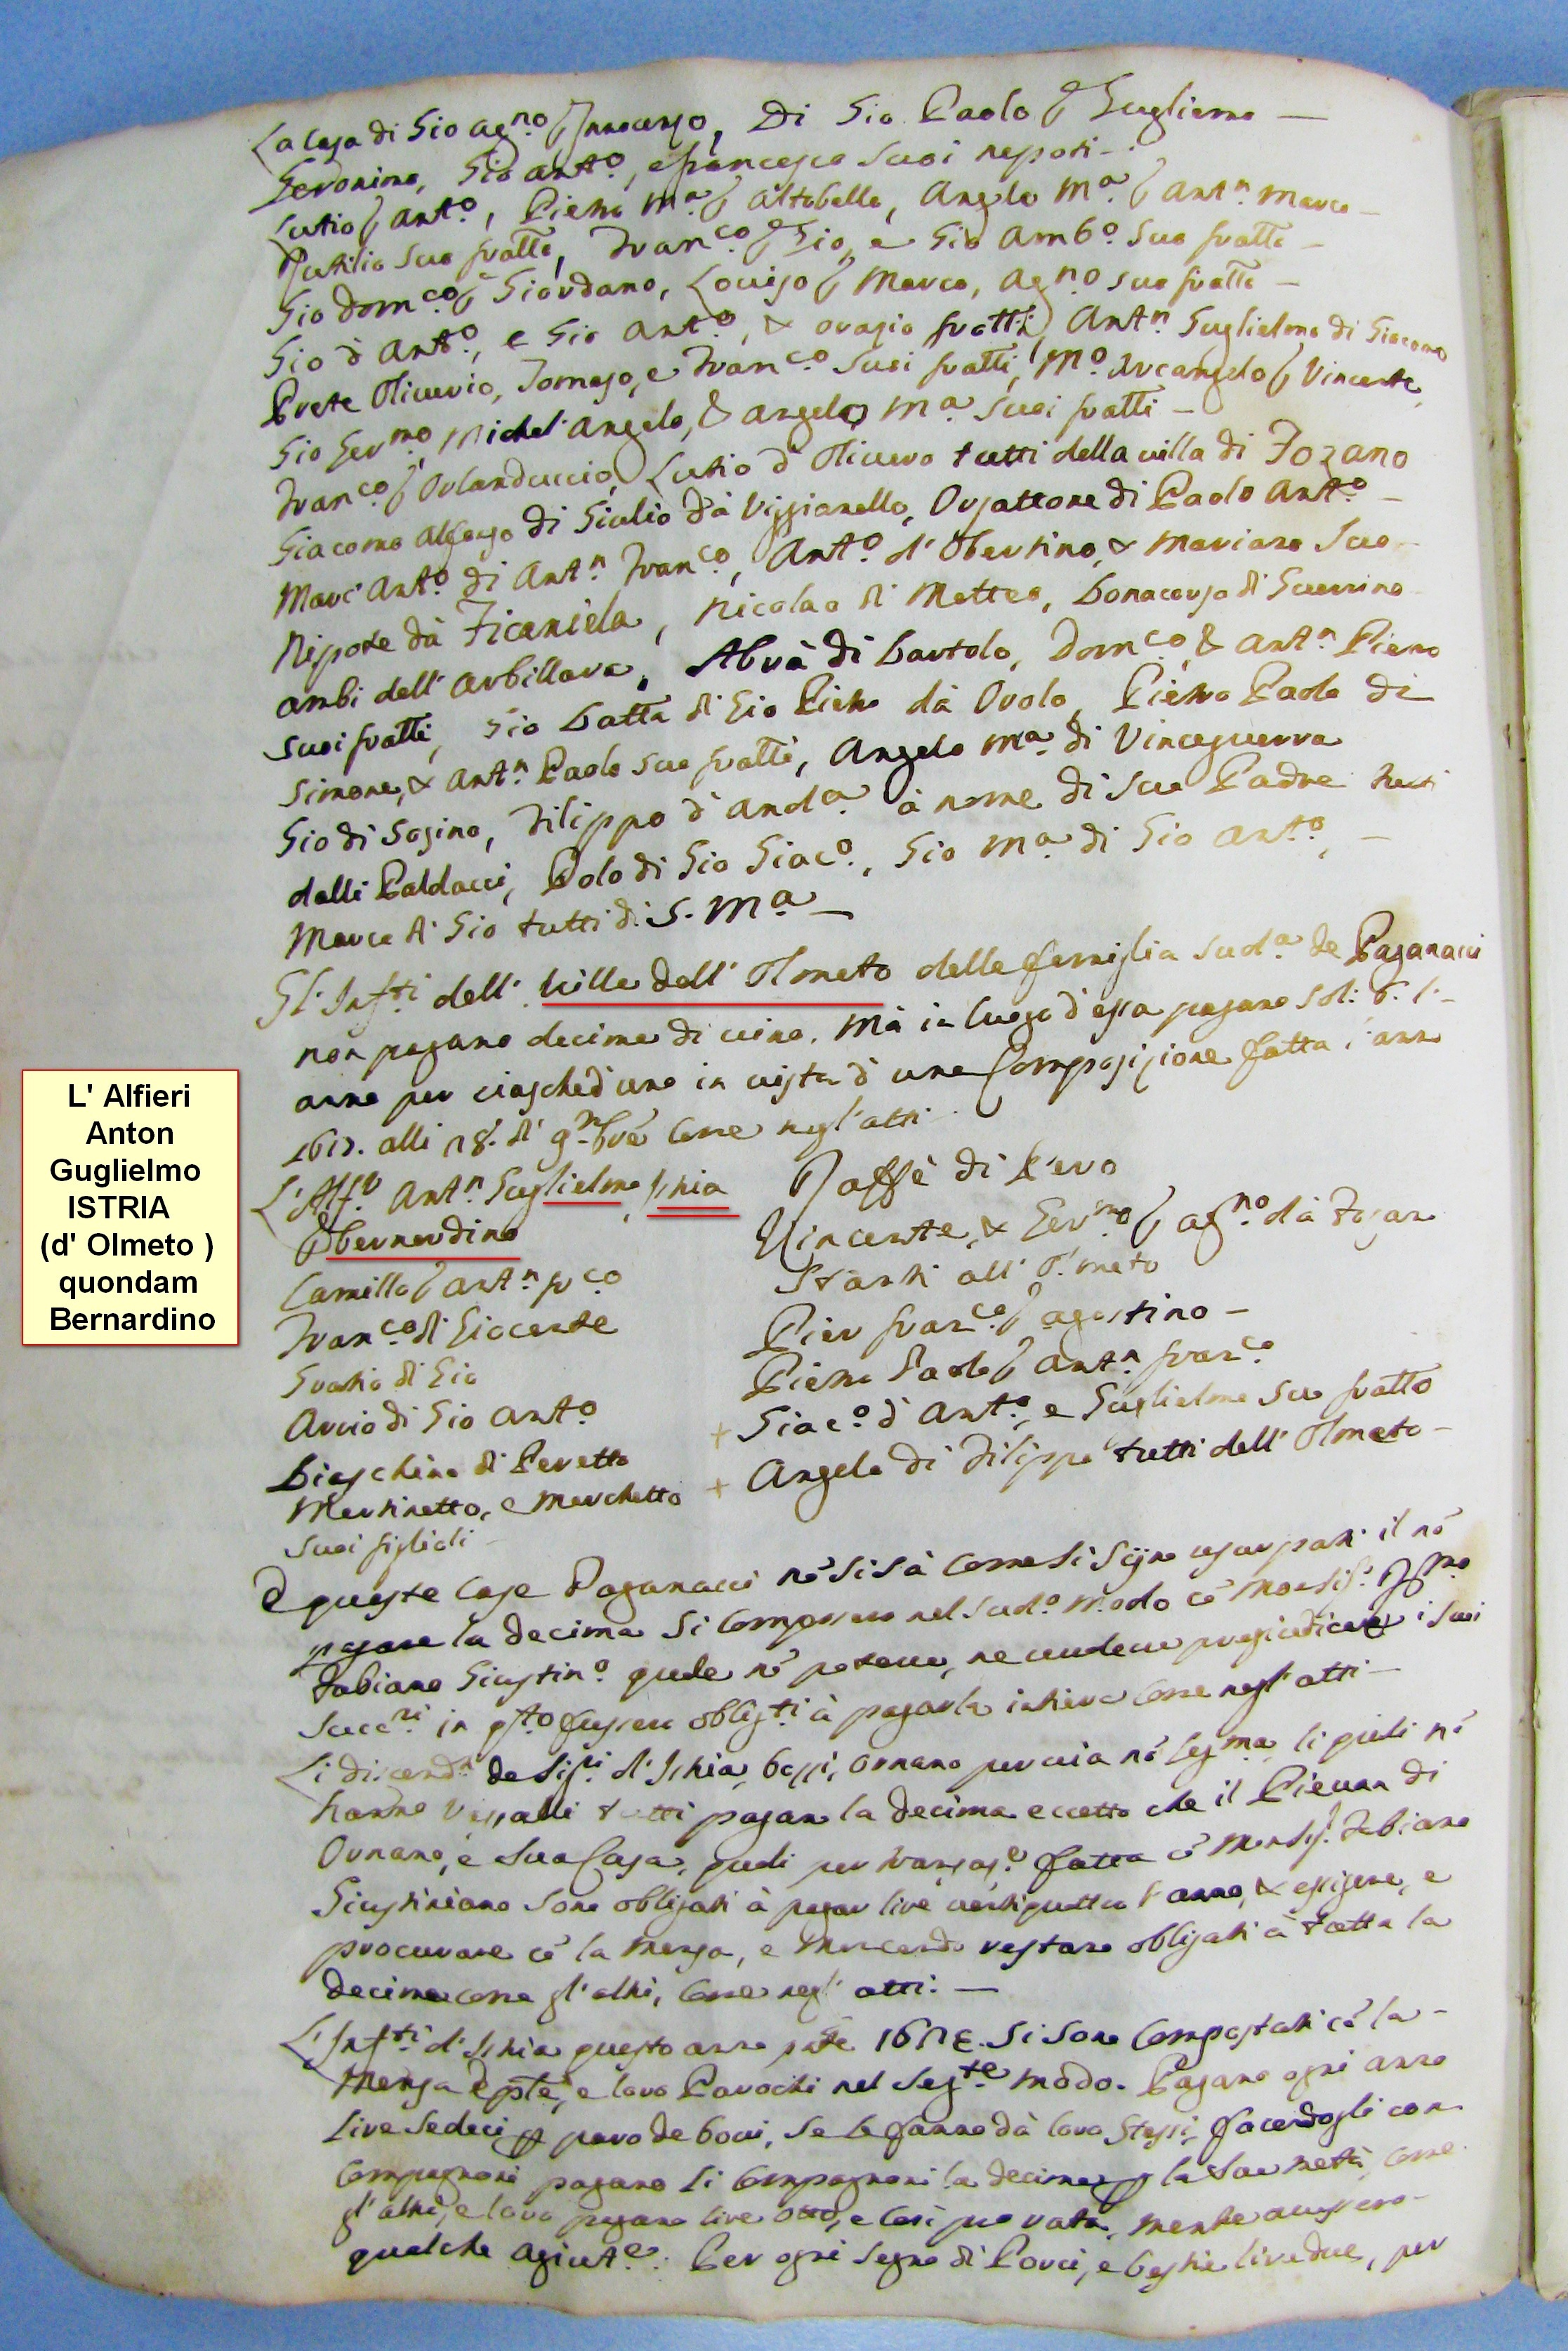 La Casa di Gio Ag.no q Innocenzo, Di Gio Paolo q Guglielmo —
Geronimo, Gio Ant.o, e francesco suoi nepoti —
Lutio q Ant.o, Pietro M.a q Altobello, Angelo M.a q Ant.n Marco —
Rutilio suo fratte, Fran.co q Gio, e Gio Amb.o suo fratte —
Gio Dom.co q Giordano, Louiso q Marco, Ag.no suo fratte —
Gio d Ant.o, e Gio Ant.o, & oratio fratti, Ant.n Guglielmo di Giacomo
Prete Oliuerio, Tomaso, e Fran.co suoi fratti, M.o Arcangelo q Vincente
Gio Ger.mo, Michel' Angelo, & Angelo M.a suoi fratti —
Fran.co q Orlanduccio, Lutio d' Oliuero tutti della uilla di Fozano
Giacomo Alfonso di Giulio dà Viggianello, Orsattone di Paolo Ant.o —
Marc' Ant.o di Ant.n Fran.co, Ant.o d' Obertino, & Mariano suo —
Nipote dà Ficaniela, Nicolao di Matteo, Bonacorso di Guerrino
ambi dell' Arbillara, Abrà di Bartolo, Dom.co & Ant.n Piero
suoi fratti, Gio Batta di Gio Pietro dà Orolo, Pietro Paolo di
Simone, & Ant.n Paolo suo fratte, Angelo M.a di Vinceguerra
Gio di Sosino, Filippo d' And.a à nome di suo Padre tutti
delli Baldacci, Polo di Gio Giac.o, Gio M.a di Gio Ant.o, —
Marco di Gio tutti di S. M.a —
Gl' Inf.ti dell' Uilla dell' Olmeto della famiglia sud.a de Paganacci
non pagano decima di uino. Mà in luogo d' essa pagano sol: 6. l' —
anno per ciascheduno in uista d' una Composizione fatta l' anno
alli 18. di 9.mbre come negl' atti
L' Alf.o Ant.n Guglielmo Istria
q bernardino
Camillo q Ant.n fr.co
Fran.co di Giocente
Gratio di Gio
Arrio di Gio Ant.o
Biaschino di Peretto
Martinetto, e Marchetto
suoi figlioli —
Raffè di Piero
Vincente, & Ger.mo q Ag.no dà Fozan
Stanti all' Olmeto
Pier fran.co q agostino —
Pietro Paolo q Ant.n fran.co
+ Giac.o d' Ant.o, e Guglielmo suo fratto
+ Angelo di Filippo tutti dell' Olmeto —
E queste Case Paganacci nõ si sà come si sijno usurpati il nõ
pagare la decima si composero nel sud.o modo cõ Monsig.r
Fabiano Giustin.o quale nõ poteua, ne uoleua pregiudicare i suoi
Succ.ri in q.to fussero oblig.ti à pagarla intiera come negl' atti —
Li discend.ti de Sig.ri d' Istria, bozzi, ornano per uia nõ leg.ma, li quali nõ
hanno Vassalli tutti pagan la decima eccetto che il Pieuan di
Ornano, e sua Casa, quali per fatta cõ Monsig.r Fabiano
Giustiniano sono obligati à pagar lire uentiquattro l' anno, & essigere, e
procurare cõ la Mensa, e Mancando restano obligati à tutta la
decima come gl' altri, come negl' atti. —
L' Inf.ti d' Istria questo anno si sono Compostati cõ la —
Mensa Ep.le, e loro Parochi nel seg.te modo. Pagano ogni anno
lire sedeci p paro de boui, se le fanno dà loro stessi, facendogli con
Compagnoni pagano li Compagnoni la decima p la sua metà, come
gl' altri, e loro pagano lire otto, e così pro rata,
qualche Per ogni segno di Porci, e bestie lire due, per
L' Alfieri
Anton
Guglielmo
ISTRIA
(d' Olmeto )
quondam
Bernardino